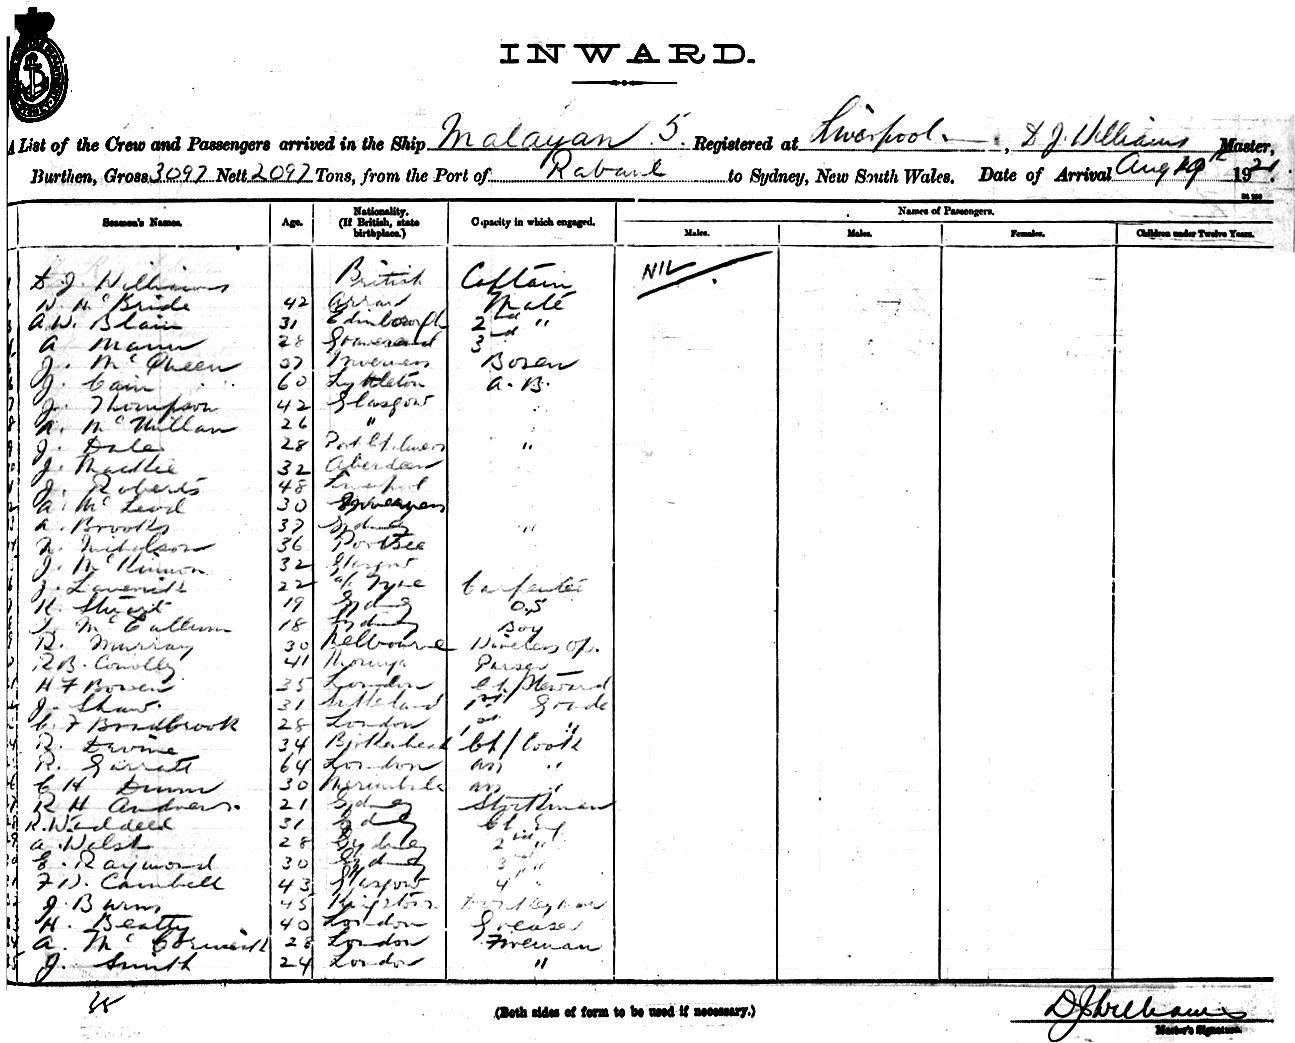 INWARD.
List of the Crew and Passengers arrived in the Ship Malayan S. Registered at Liverpool, D J. Williams Master,
Burthen, Gross 3097 Nett 2097 Tons, from the Port of Rabaul to Sydney, New South Wales. Date of Arrival Aug 1921.
Seamen's Names. Age. Nationality. (If British, state birthplace.) Capacity in which engaged. Names of Passengers.
Males. Males. Females. Children under Twelve Years.
D J. Williams British Captain NIL
Mc Bride 42 Mate
A. W. Blair 31 Edinborough 2nd "
A Mann 28 Gravesend 3rd
J. Mc Queen 37 Inverness Bosen
J. Cain 60 Lyttleton A. B.
J. Thompson 42 Glasgow
A. Mc Millan 26 "
J. Dale 28 Port Chalmers "
J. Mackie 32 Aberdeen
J. Roberts 48 Liverpool
A. Mc Leod 30
A. Brooks 37 Sydney "
N. Nicholson 36 Portsea
J. Mc Kinnon 32 Glasgow
J. Laverick 22 Tyne Carpenter
R. Stuart 19 Sydney O.S
Mc Callum 18 Sydney Boy
R. Murray 30 Melbourne Wireless Op.
R B. Conolly 41 Moruya Purser
H F Bowen 35 London Ch/Steward
J. Shaw. 31 1st
C. F Bradbrook 28 London 1st "
R. Devine 34 Birkenhead Ch/Cook
R. Garratt 64 London "
C H Dunn 30 Merimbula "
R H Andrews. 21 Sydney
R. Waddell 31 Sydney Ch
A. Welsh 28 Sydney 2nd "
E. Raymond 30 Sydney 3rd "
F D. Cambell 43 Glasgow 4th "
J. Burns 45 Kingston Donkeyman
H. Beatty 40 London Greaser
A. Mc Cormick 28 London Fireman
J. Smith 24 London "
35
(Both sides of form to be used if necessary.)
D J Williams
Master's Signature.